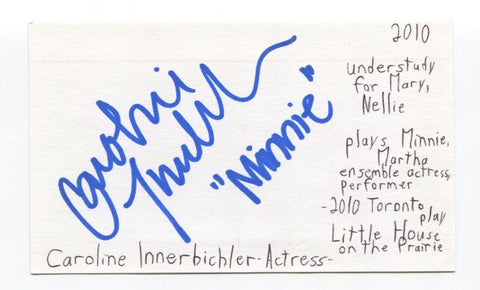 2010
understudy
for Mary,
Nellie
plays Minnie,
Martha
ensemble actress,
performer
-2010 Toronto
play
Little House
on the Prairie
Caroline
"Minnie"
Caroline Innerbichler-Actress-